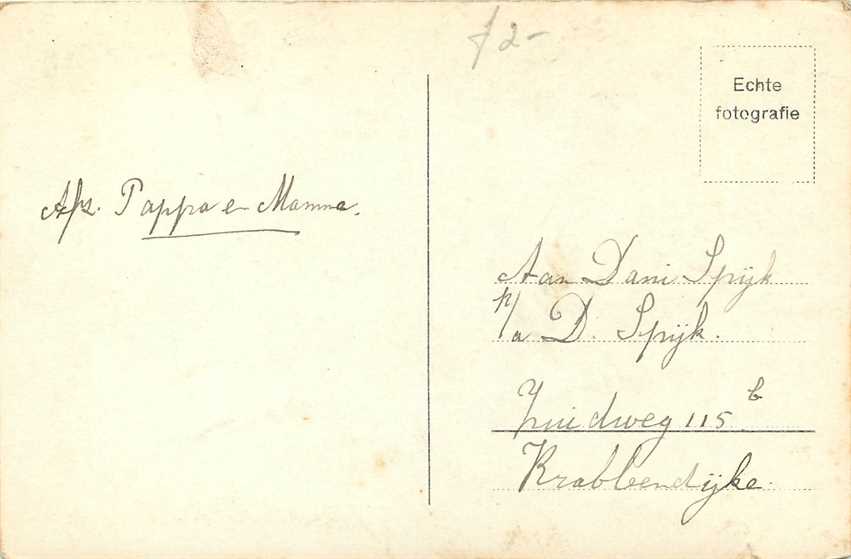 f 2-
Echte
fotografie
Afz. Pappa en Mamma.
Aan Dani Spijk
p/a D. Spijk.
Zuidweg 115 b
Krabbendijke.